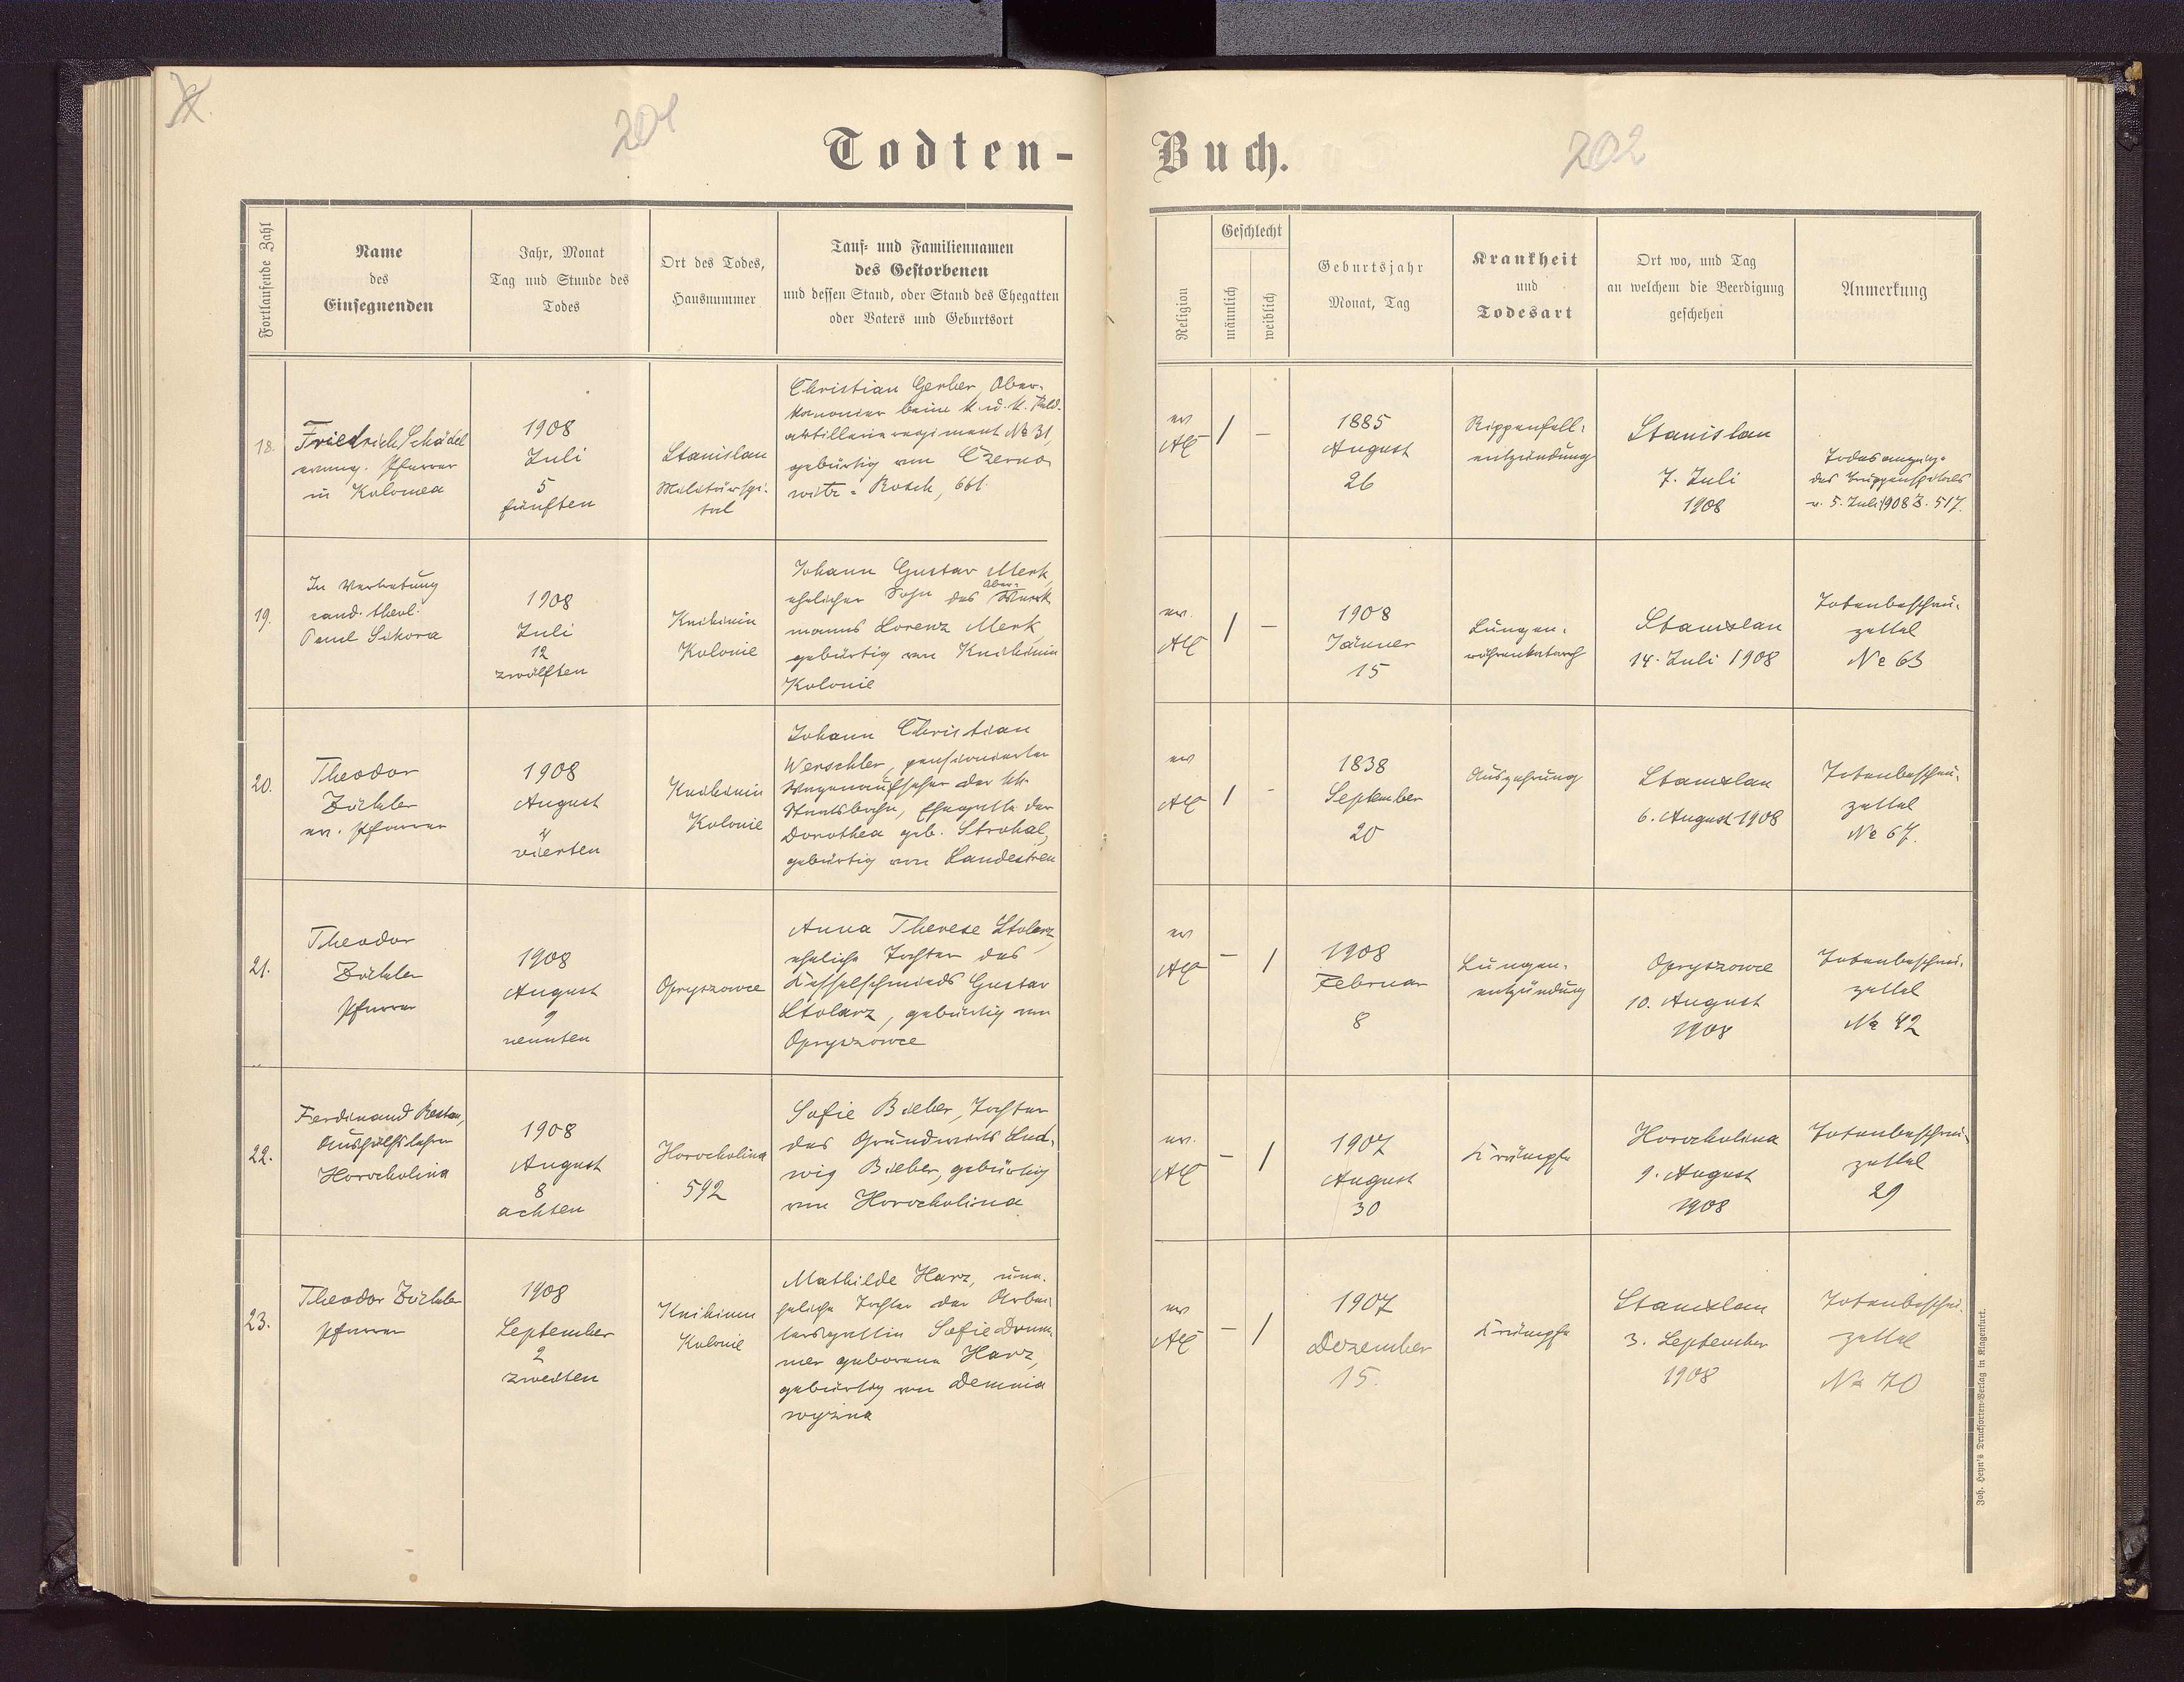 201
202
Todten-
Buch.
Fortlaufende Zahl
Name
des
Einsegnenden
Jahr, Monat
Tag und Stunde des
Todes
Ort des Todes,
Hausnummer
Tauf- und Familiennamen
des Gestorbenen
und dessen Stand, oder Stand des Ehegatten
oder Vaters und Geburtsort
Religion
Geschlecht
männlich
weiblich
Geburtsjahr
Monat, Tag
Krankheit
und
Todesart
Ort wo, und Tag
an welchem die Beerdigung
geschehen
Anmerkung
18.
Friedrich Schädel
evang. Pfarrer
in Kolomea
1908
Juli
5
fünften
Stanislau
Militärspi-
tal
Christian Gerber, Ober-
kanonier beim k. u. k. Feld-
artillerieregiment № 31,
gebürtig von Czerno-
witz-Rosch, 661.
ev
AC
1
–
1885
August
26
Rippenfell-
entzündung
Stanislau
7. Juli
1908
Todesanzeige
des Truppenspitales
v. 5. Juli 1908 Z. 517.
19.
In Vertretung
cand. theol.
Paul Sikora
1908
Juli
12
zwölften
Knihinin
Kolonie
Johann Gustav Merk,
ehelicher Sohn des Ober-Werk-
manns Lorenz Merk,
gebürtig von Knihinin
Kolonie
ev.
AC
1
–
1908
Jänner
15
Lungen-
röhrenkatarrh
Stanislau
14. Juli 1908
Totenbeschau-
zettel
№ 63
20.
Theodor
Zöckler
ev. Pfarrer
1908
August
4
vierten
Knihinin
Kolonie
Johann Christian
Werschler, pensionierter
Wagenaufseher der kk.
Staatsbahn, Ehegatte der
Dorothea geb. Strohal,
gebürtig von Landestreu
ev
AC
1
-
1838
September
20
Auszehrung
Stanislau
6. August 1908
Totenbeschau-
zettel
№ 67.
21.
Theodor
Zöckler
Pfarrer
1908
August
9
neunten
Opryszowce
Anna Therese Stolarz,
eheliche Tochter des
Kesselschmieds Gustav
Stolarz, gebürtig von
Opryszowce
ev
AC
–
1
1908
Februar
8
Lungen-
entzündung
Opryszowce
10. August
1908
Totenbeschau-
zettel
№ 42
22.
Ferdinand Restau,
Aushilfslehrer
Horocholina
1908
August
8
achten
Horocholina
592
Sofie Bieber, Tochter
des Grundwirts Lud-
wig Bieber, gebürtig
von Horocholina
ev.
AC
–
1
1907
August
30
Krämpfe
Horocholina
9. August
1908
Totenbeschau-
zettel
29
23.
Theodor Zöckler
Pfarrer
1908
September
2
zweiten
Knihinin
Kolonie
Mathilde Harz, une-
heliche Tochter der Arbei-
tersgattin Sofie Drum-
mer geborene Harz,
gebürtig von Demnia
wyżna
ev
AC
–
1
1907
Dezember
15.
Krämpfe
Stanislau
3. September
1908
Totenbeschau-
zettel
№ 70
Joh. Heyn's Drucksorten-Verlag in Klagenfurt.